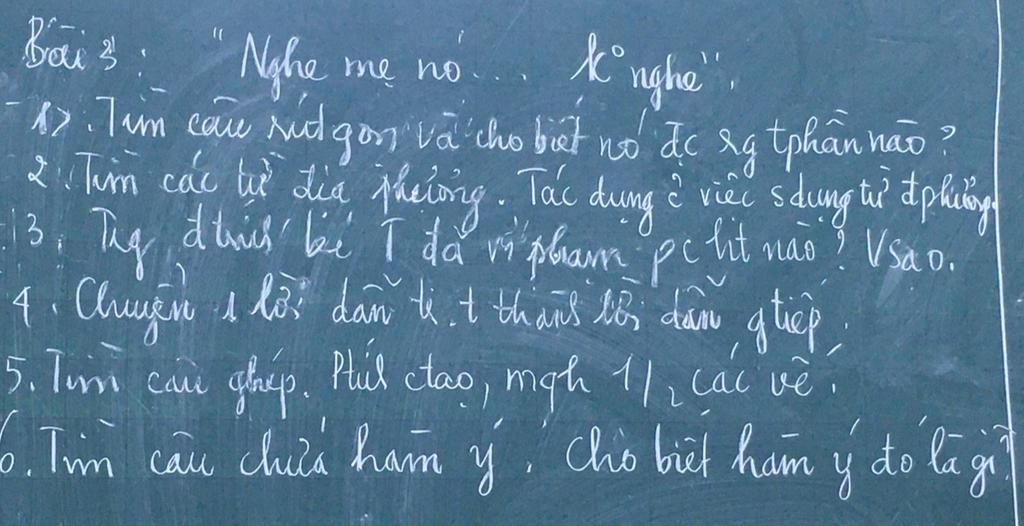 Bài 3 : "Nghe mẹ nó.... k° nghe".
1>. Tìm câu rút gọn và cho biết nó đc rg tphần nào?
2. Tìm các từ địa phương. Tác dụng c̉ việc sdụng từ đphương.
3. Trg đtrích bé T đã vi phạm pc hit nào? Vsao.
4. Chuyển 1 lời dẫn tt thành lời dẫn gtiếp.
5. Tìm câu ghép. Ptích ctạo, mqh 1/2 các vế.
6. Tìm câu chứa hàm ý. Cho biết hàm ý đó là gì?